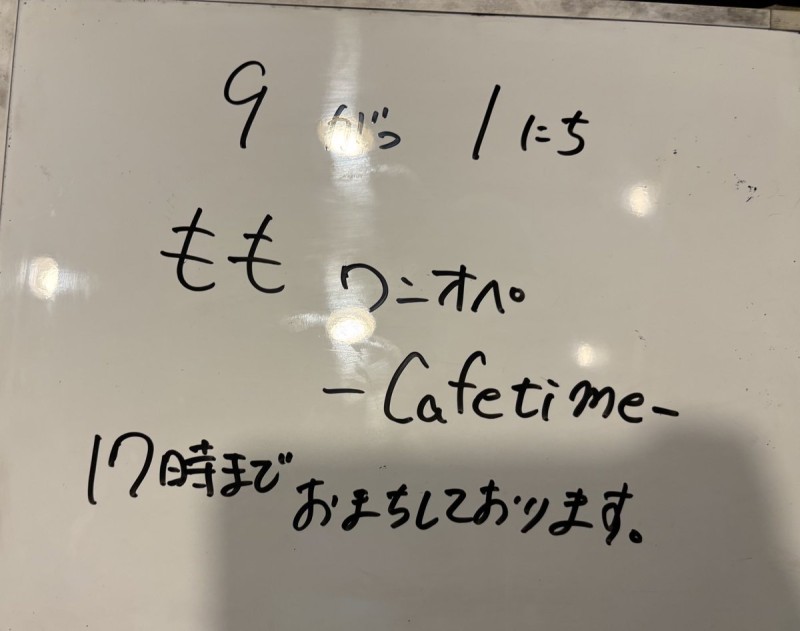 9がつ 1にち
もも ワンオペ
-Cafetime-
17時まで おまちしております。